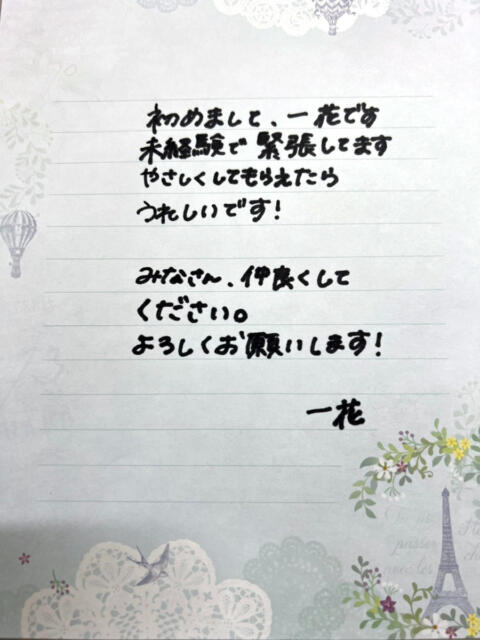 初めまして、一花です
未経験で緊張してます
やさしくしてもらえたら
うれしいです!
みなさん、仲良くして
ください。
よろしくお願いします!
一花